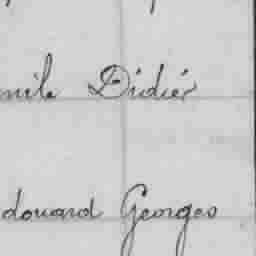 mile Didier
douard Georges